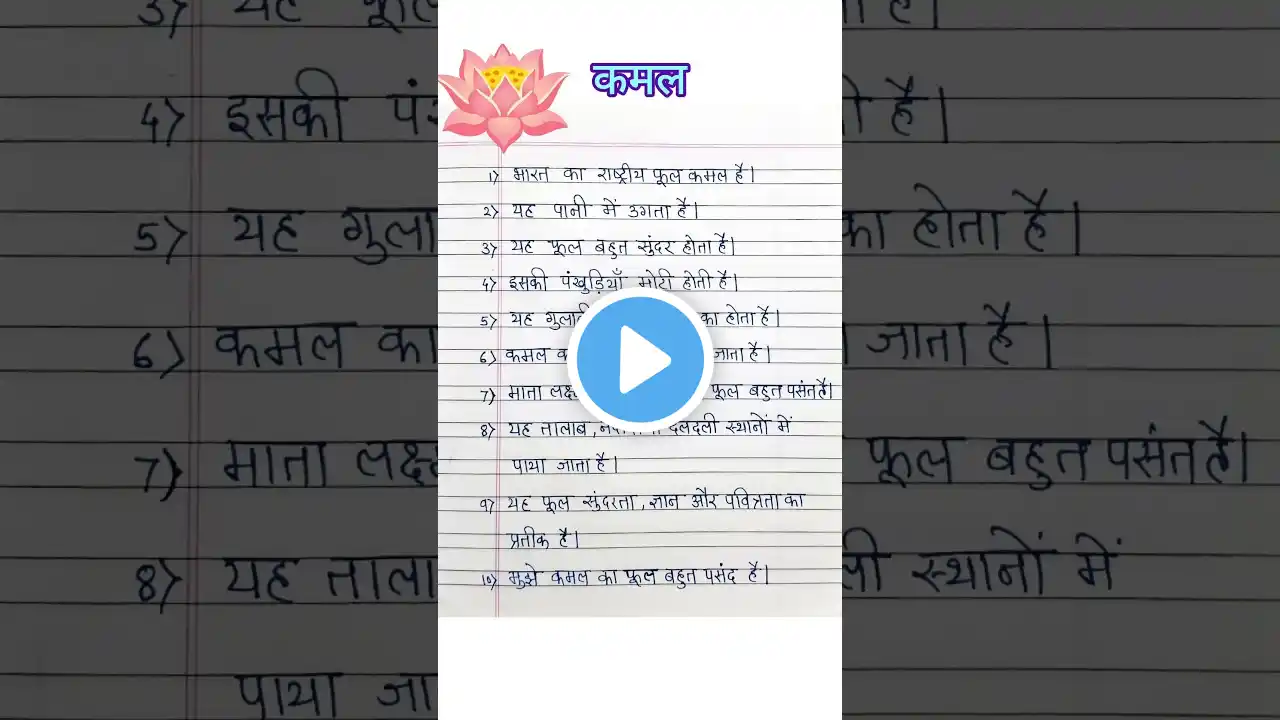 कमल
1) भारत का राष्ट्रीय फूल कमल है।
2) यह पानी में उगता है।
3) यह फूल बहुत सुंदर होता है।
4) इसकी पंखुड़ियाँ मोटी होती है।
5) यह गुला का होता है।
6) कमल जाता है।
7) माता फूल बहुत पसंत है।
8) यह तालाब, दलदली स्थानों में
पाया जाता है।
9) यह फूल सुंदरता, ज्ञान और पवित्रता का
प्रतीक है।
10) मुझे कमल का फूल बहुत पसंद है।